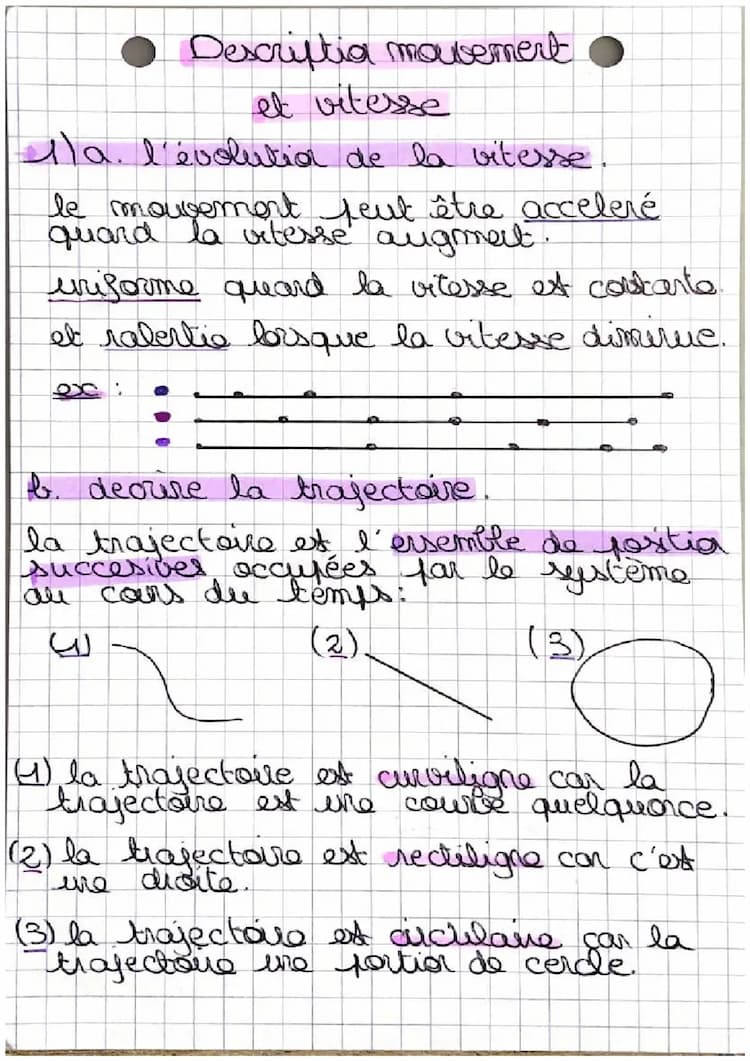 Description mouvement
et vitesse
1)a. l'évolution de la vitesse.
le mouvement peut être acceleré
quand la vitesse augment.
uniforme quand la vitesse est constante.
et ralentie lorsque la vitesse diminue.
ex :
b. decrire la trajectoire.
la trajectoire est l'ensemble de position
succesives occupées par le système
au cours du temps:
(1) (2) (3)
(1) la trajectoire est curviligne car la
trajectoire est une courbe quelquonce.
(2) la trajectoire est rectiligne car c'est
une droite.
(3) la trajectoire est circulaire car la
trajectoire une portion de cercle.